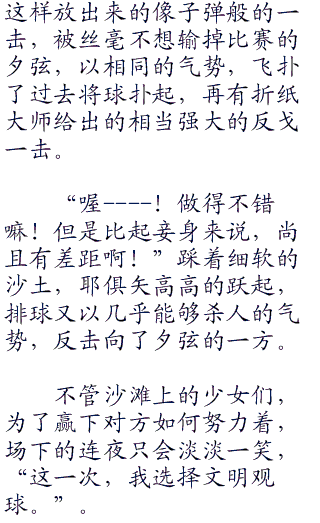 这样放出来的像子弹般的一
击，被丝毫不想输掉比赛的
夕弦，以相同的气势，飞扑
了过去将球扑起，再有折纸
大师给出的相当强大的反戈
一击。
“喔----！做得不错
嘛！但是比起妾身来说，尚
且有差距啊！”踩着细软的
沙土，耶俱矢高高的跃起，
排球又以几乎能够杀人的气
势，反击向了夕弦的一方。
不管沙滩上的少女们，
为了赢下对方如何努力着，
场下的连夜只会淡淡一笑，
“这一次，我选择文明观
球。”。